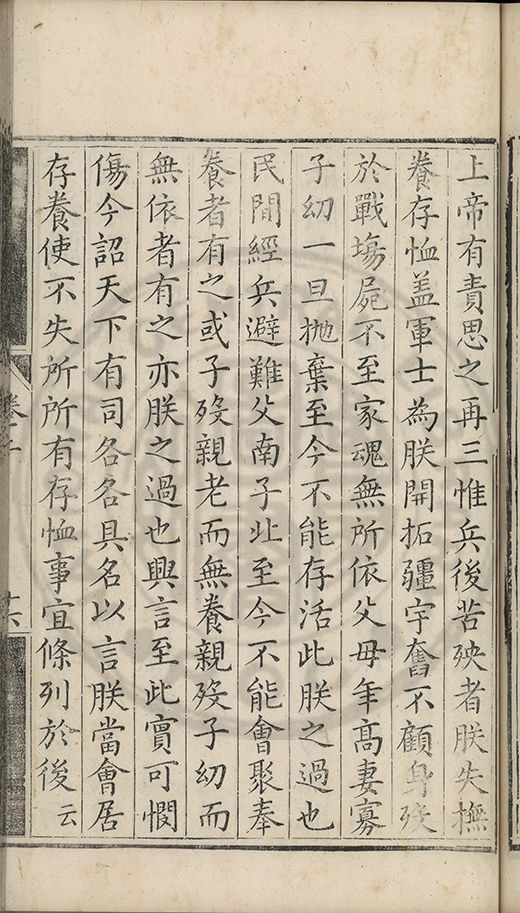 上帝有責思之再三惟兵後苦殃者朕失撫
養存恤盖軍士為朕開拓疆宇奮不顧身殁
於戰塲屍不至家魂無所依父母年髙妻寡
子幼一旦抛棄至今不能存活此朕之過也
民間經兵避難父南子北至今不能會聚奉
養者有之或子殁親老而無養親殁子幼而
無依者有之亦朕之過也興言至此實可憫
傷今詔天下有司各各具名以言朕當會居
存養使不失所所有存恤事宜條列於後云